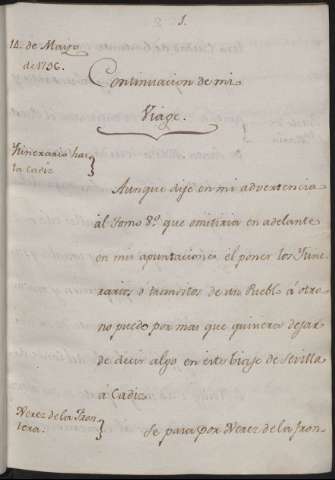 1.
14. de Mayo
de 1796.
Continuacion de mi
Viage.
Ytinerario has
ta Cadiz
Aunque dije en mi advertencia
al tomo 8º que omitiria en adelante
en mis apuntaciones el poner los Ytine
rarios, o transitos de un Pueblo á otro
no puedo por mas que quisiera dejar
de decir algo en este biaje de Sevilla
á Cadiz.
Xerez de la Fron
tera.
Se pasa por Xerez de la fron-